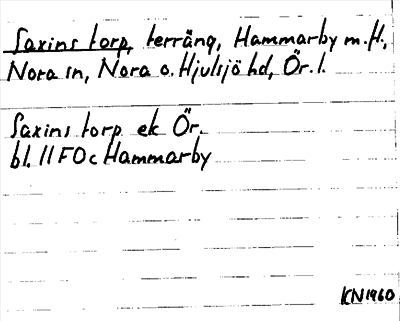 Saxins torp, terräng, Hammarby m.fl.,
Nora sn, Nora o. Hjulsjö hd, Ör. l.
Saxins torp ek Ör.
bl. 11F0c Hammarby
KN1960